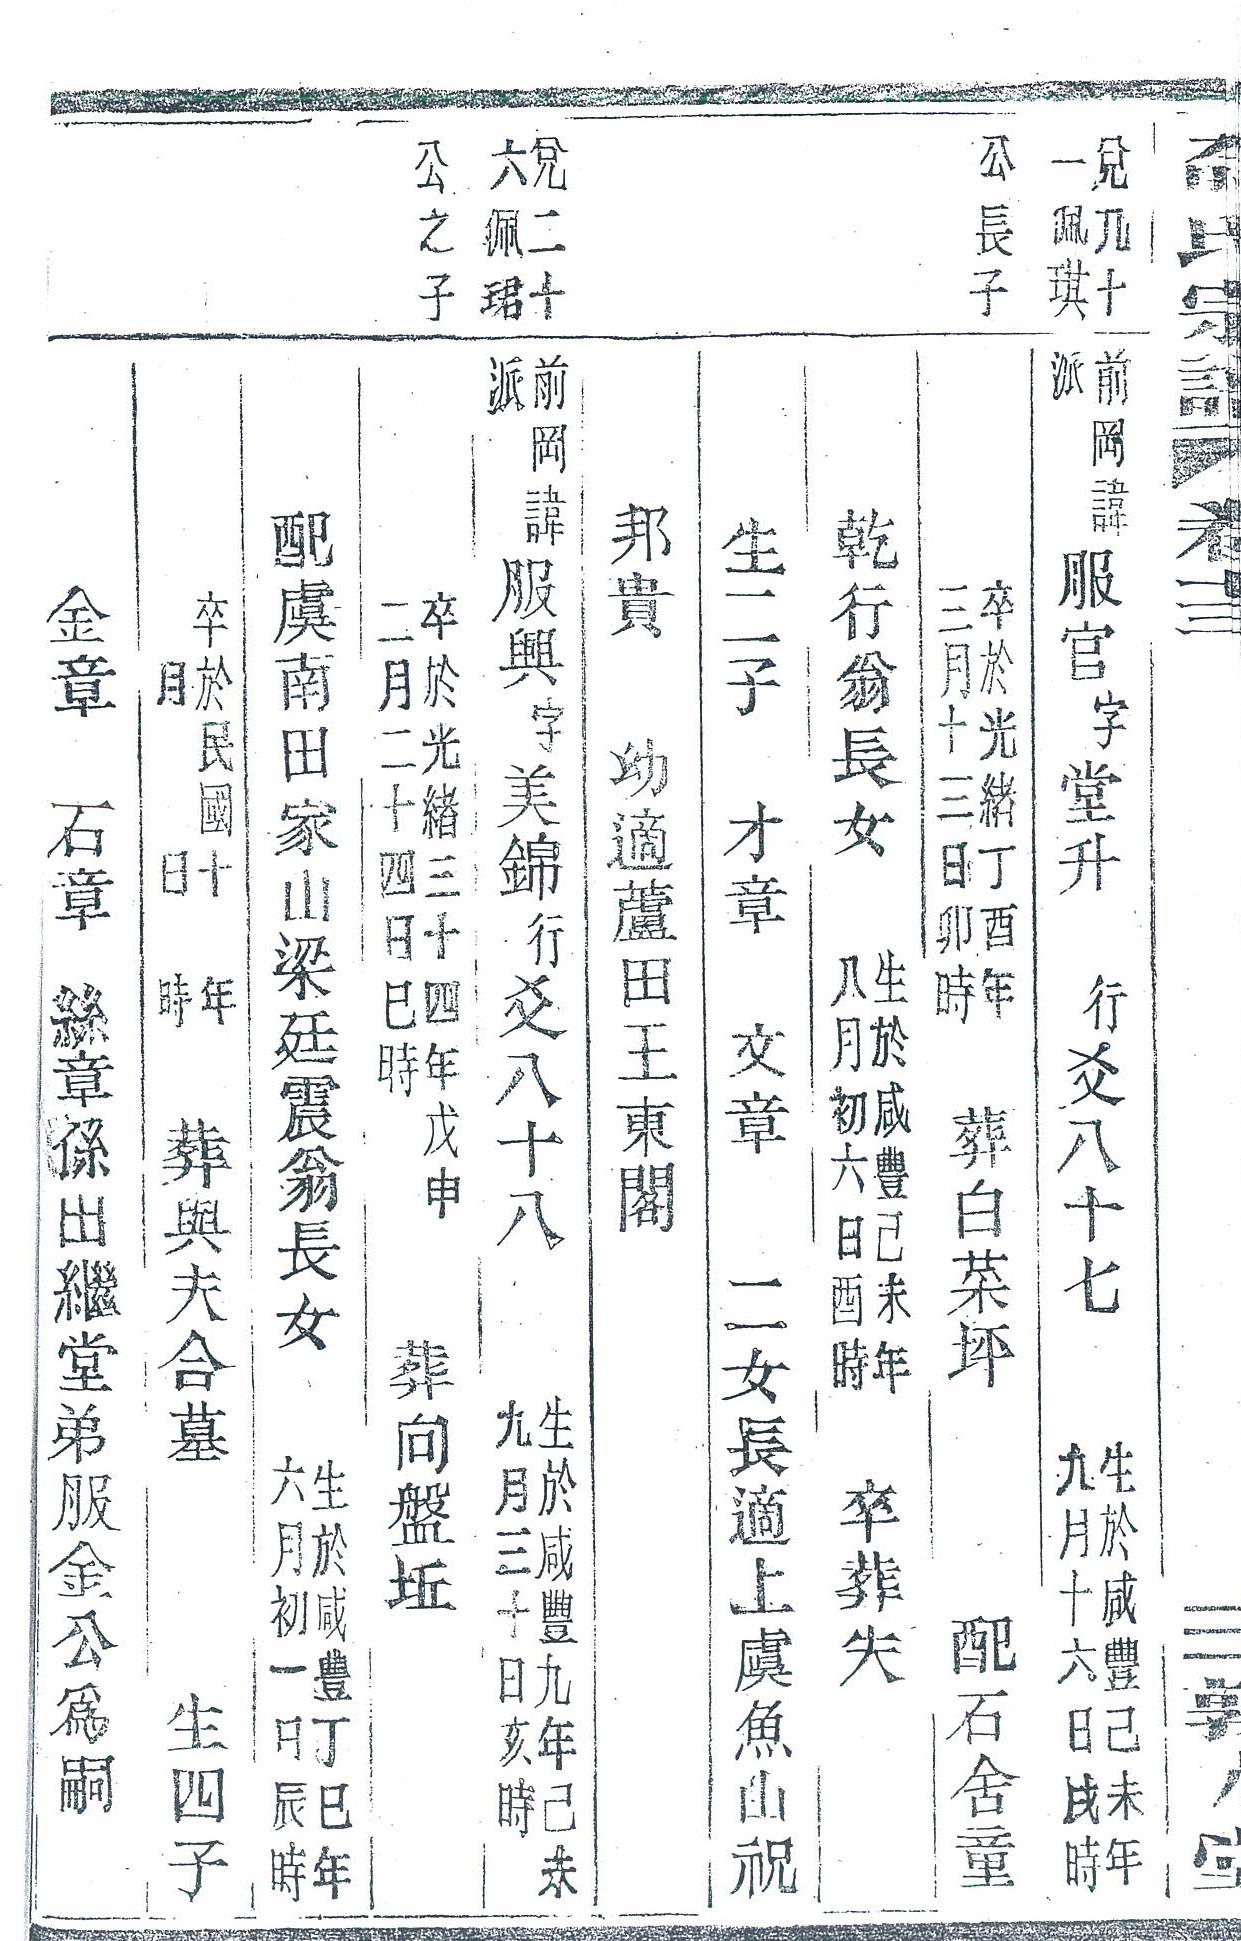 氏宗譜 卷三
兌九十
一珮琪
公長子
前岡諱服官字堂升 行爻八十七 生於咸豐己未年九月十六日戌時
派
卒於光緒丁酉年三月十三日卯時 葬白菜坪 配石舍童
乾行翁長女 生於咸豐己未年八月初六日酉時 卒葬失
生二子 才章 文章 二女長適上虞魚山祝
邦貴 幼適蘆田王東閣
兌二十
六珮珺
公之子
前岡諱服興字美錦行爻八十八 生於咸豐九年己未九月三十日亥時
派
卒於光緒三十四年戊申二月二十四日巳時 葬向盤坵
配虞南田家山梁廷震翁長女 生於咸豐丁巳年六月初一日辰時
卒於民國十 年 月 日 時 葬與夫合墓 生四子
金章 石章 絲章係出繼堂弟服金公為嗣